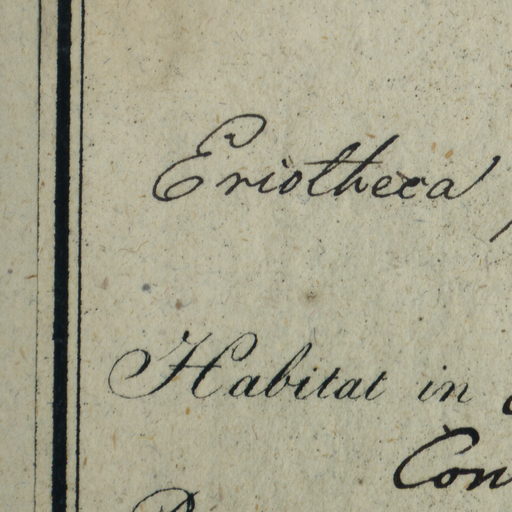 Eriotheca
Habitat in
Con